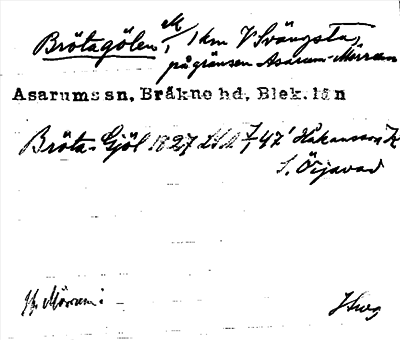 Brötagölen, M, 1 km V Svängsta,
på gränsen Asarum-Mörrum
Asarums sn, Bräkne hd, Blek. län
Bröta-Gjöl 1827 47' Håkansson K
S. Öijavad
Mörrum: